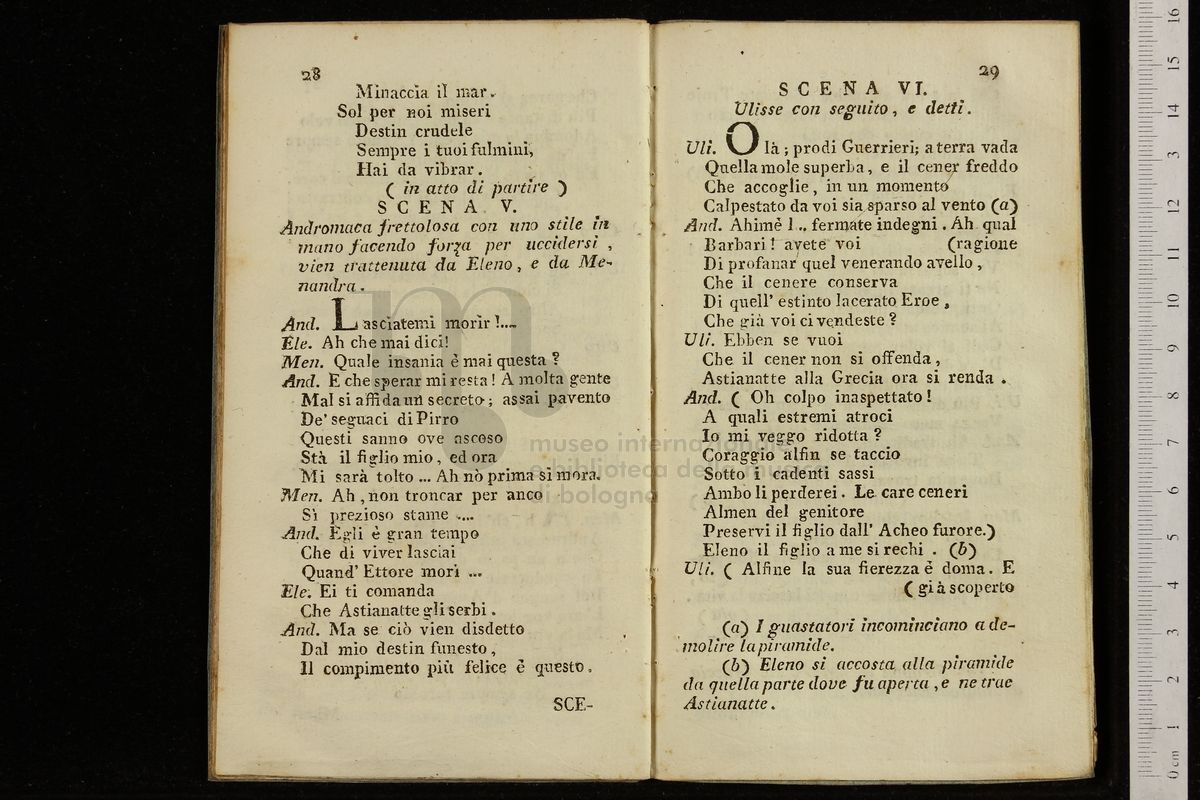 28
Minaccia il mar.
Sol per noi miseri
Destin crudele
Sempre i tuoi fulmini,
Hai da vibrar.
( in atto di partire )
SCENA V.
Andromaca frettolosa con uno stile in
mano facendo forza per uccidersi ,
vien trattenuta da Eleno, e da Me-
nandra.
And. Lasciatemi morir !....
Ele. Ah che mai dici!
Men. Quale insania è mai questa ?
And. E che sperar mi resta! A molta gente
Mal si affida un secreto ; assai pavento
De' seguaci di Pirro
Questi sanno ove ascoso
Stà il figlio mio, ed ora
Mi sarà tolto ... Ah nò prima si mora.
Men. Ah , non troncar per anco
Sì prezioso stame ....
And. Egli è gran tempo
Che di viver lasciai
Quand' Ettore morì ...
Ele. Ei ti comanda
Che Astianatte gli serbi.
And. Ma se ciò vien disdetto
Dal mio destin funesto,
Il compimento più felice è questo.
SCE-
29
SCENA VI.
Ulisse con seguito, e detti.
Uli. Olà ; prodi Guerrieri; a terra vada
Quella mole superba, e il cener freddo
Che accoglie, in un momento
Calpestato da voi sia sparso al vento (a)
And. Ahimè ! .. fermate indegni. Ah qual
Barbari! avete voi (ragione
Di profanar quel venerando avello,
Che il cenere conserva
Di quell' estinto lacerato Eroe,
Che già voi ci vendeste ?
Uli. Ebben se vuoi
Che il cener non si offenda,
Astianatte alla Grecia ora si renda .
And. ( Oh colpo inaspettato !
A quali estremi atroci
Io mi veggo ridotta ?
Coraggio alfin se taccio
Sotto i cadenti sassi
Ambo li perderei. Le care ceneri
Almen del genitore
Preservi il figlio dall' Acheo furore.)
Eleno il figlio a me si rechi . (b)
Uli. ( Alfine la sua fierezza è doma. E
( già scoperto
(a) I guastatori incominciano a de-
molire la piramide.
(b) Eleno si accosta alla piramide
da quella parte dove fu aperta , e ne trae
Astianatte.
museo internazionale
e biblioteca della musica
di bologna
0 cm 1 2 3 4 5 6 7 8 9 10 11 12 13 14 15 16